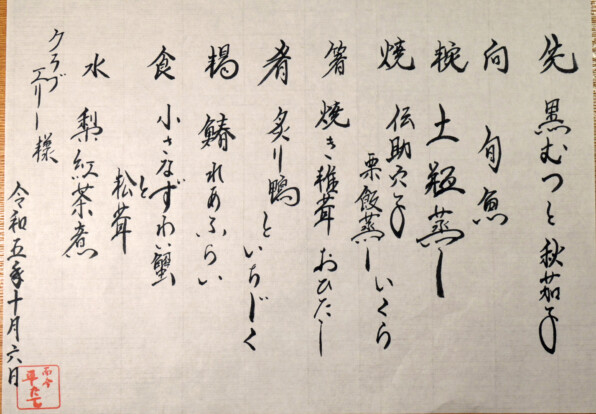 先 黒むつと秋茄子
向 旬魚
椀 土瓶蒸し
焼 伝助穴子
栗飯蒸し いくら
箸 焼き椎茸 おひたし
肴 炙り鴨 といちじく
揚 鰆 れあふらい
食 小さなずわい蟹
と松茸
水 梨紅茶煮
クラブ
エリー 様
令和五年十月六日
而今
平たて